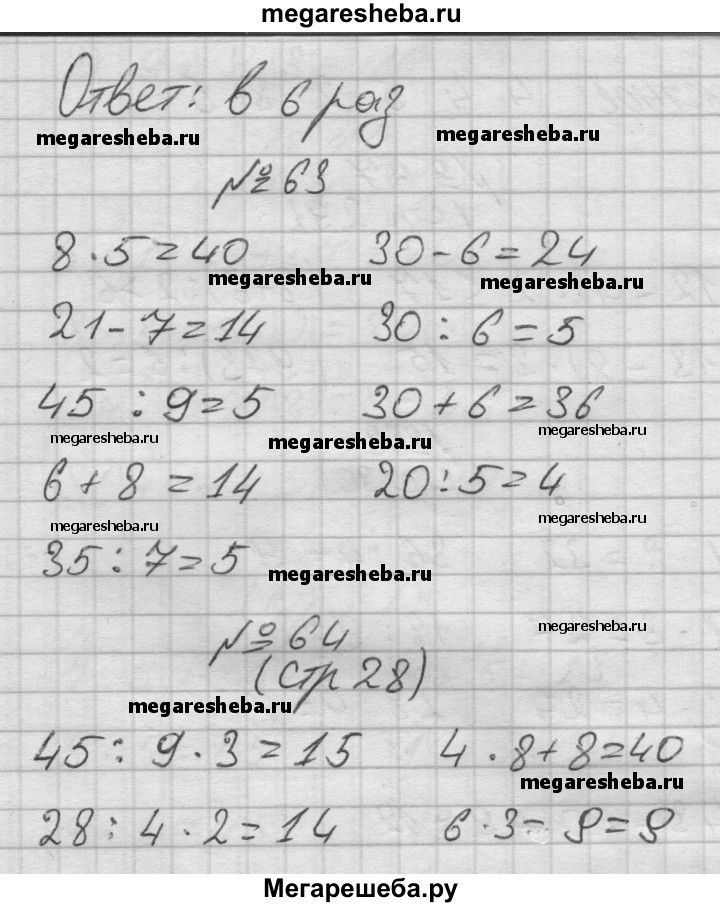 megaresheba.ru
Ответ: в 6 раз
megaresheba.ru megaresheba.ru
№ 63
8 · 5 = 40 30 - 6 = 24
megaresheba.ru megaresheba.ru
21 - 7 = 14 30 : 6 = 5
45 : 9 = 5 30 + 6 = 36
megaresheba.ru megaresheba.ru megaresheba.ru
6 + 8 = 14 20 : 5 = 4
megaresheba.ru megaresheba.ru
35 : 7 = 5
megaresheba.ru
№ 64
megaresheba.ru
(стр 28)
megaresheba.ru
45 : 9 · 3 = 15 4 · 8 + 8 = 40
megaresheba.ru
28 : 4 · 2 = 14 6 · 3 - 9 = 9
Мегарешеба.ру